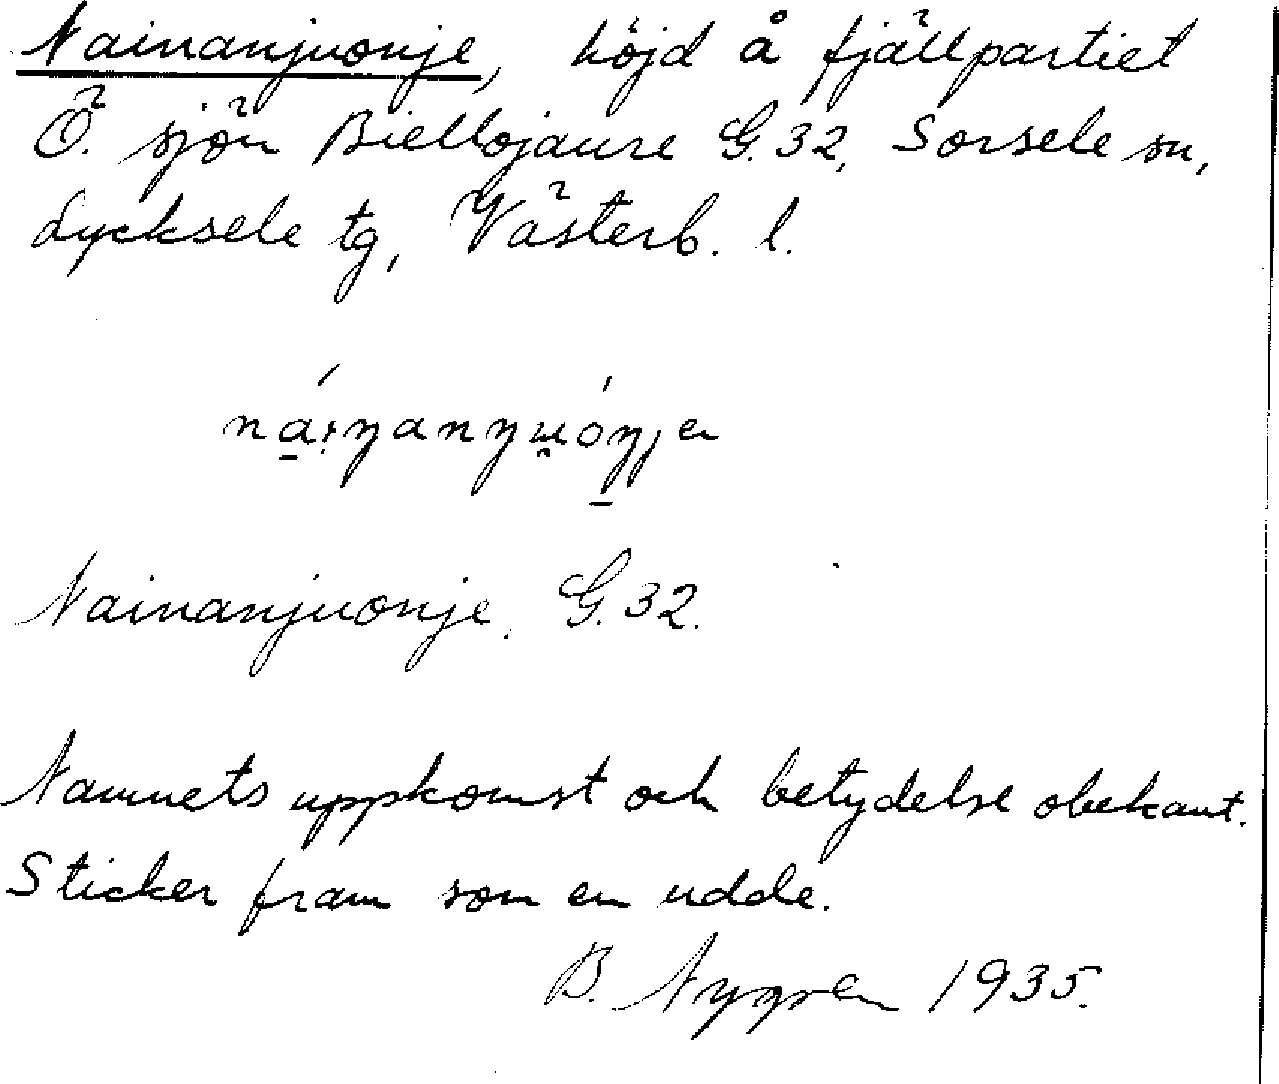 Nainanjuonje, höjd å fjällpartiet
Ö. sjön Biellojaure G.32, Sorsele sn,
Lycksele tg, Västerb. l.
Nainanjuonje. G.32.
Namnets uppkomst och betydelse obekant.
Sticker fram som en udde.
B. Nygren 1935.